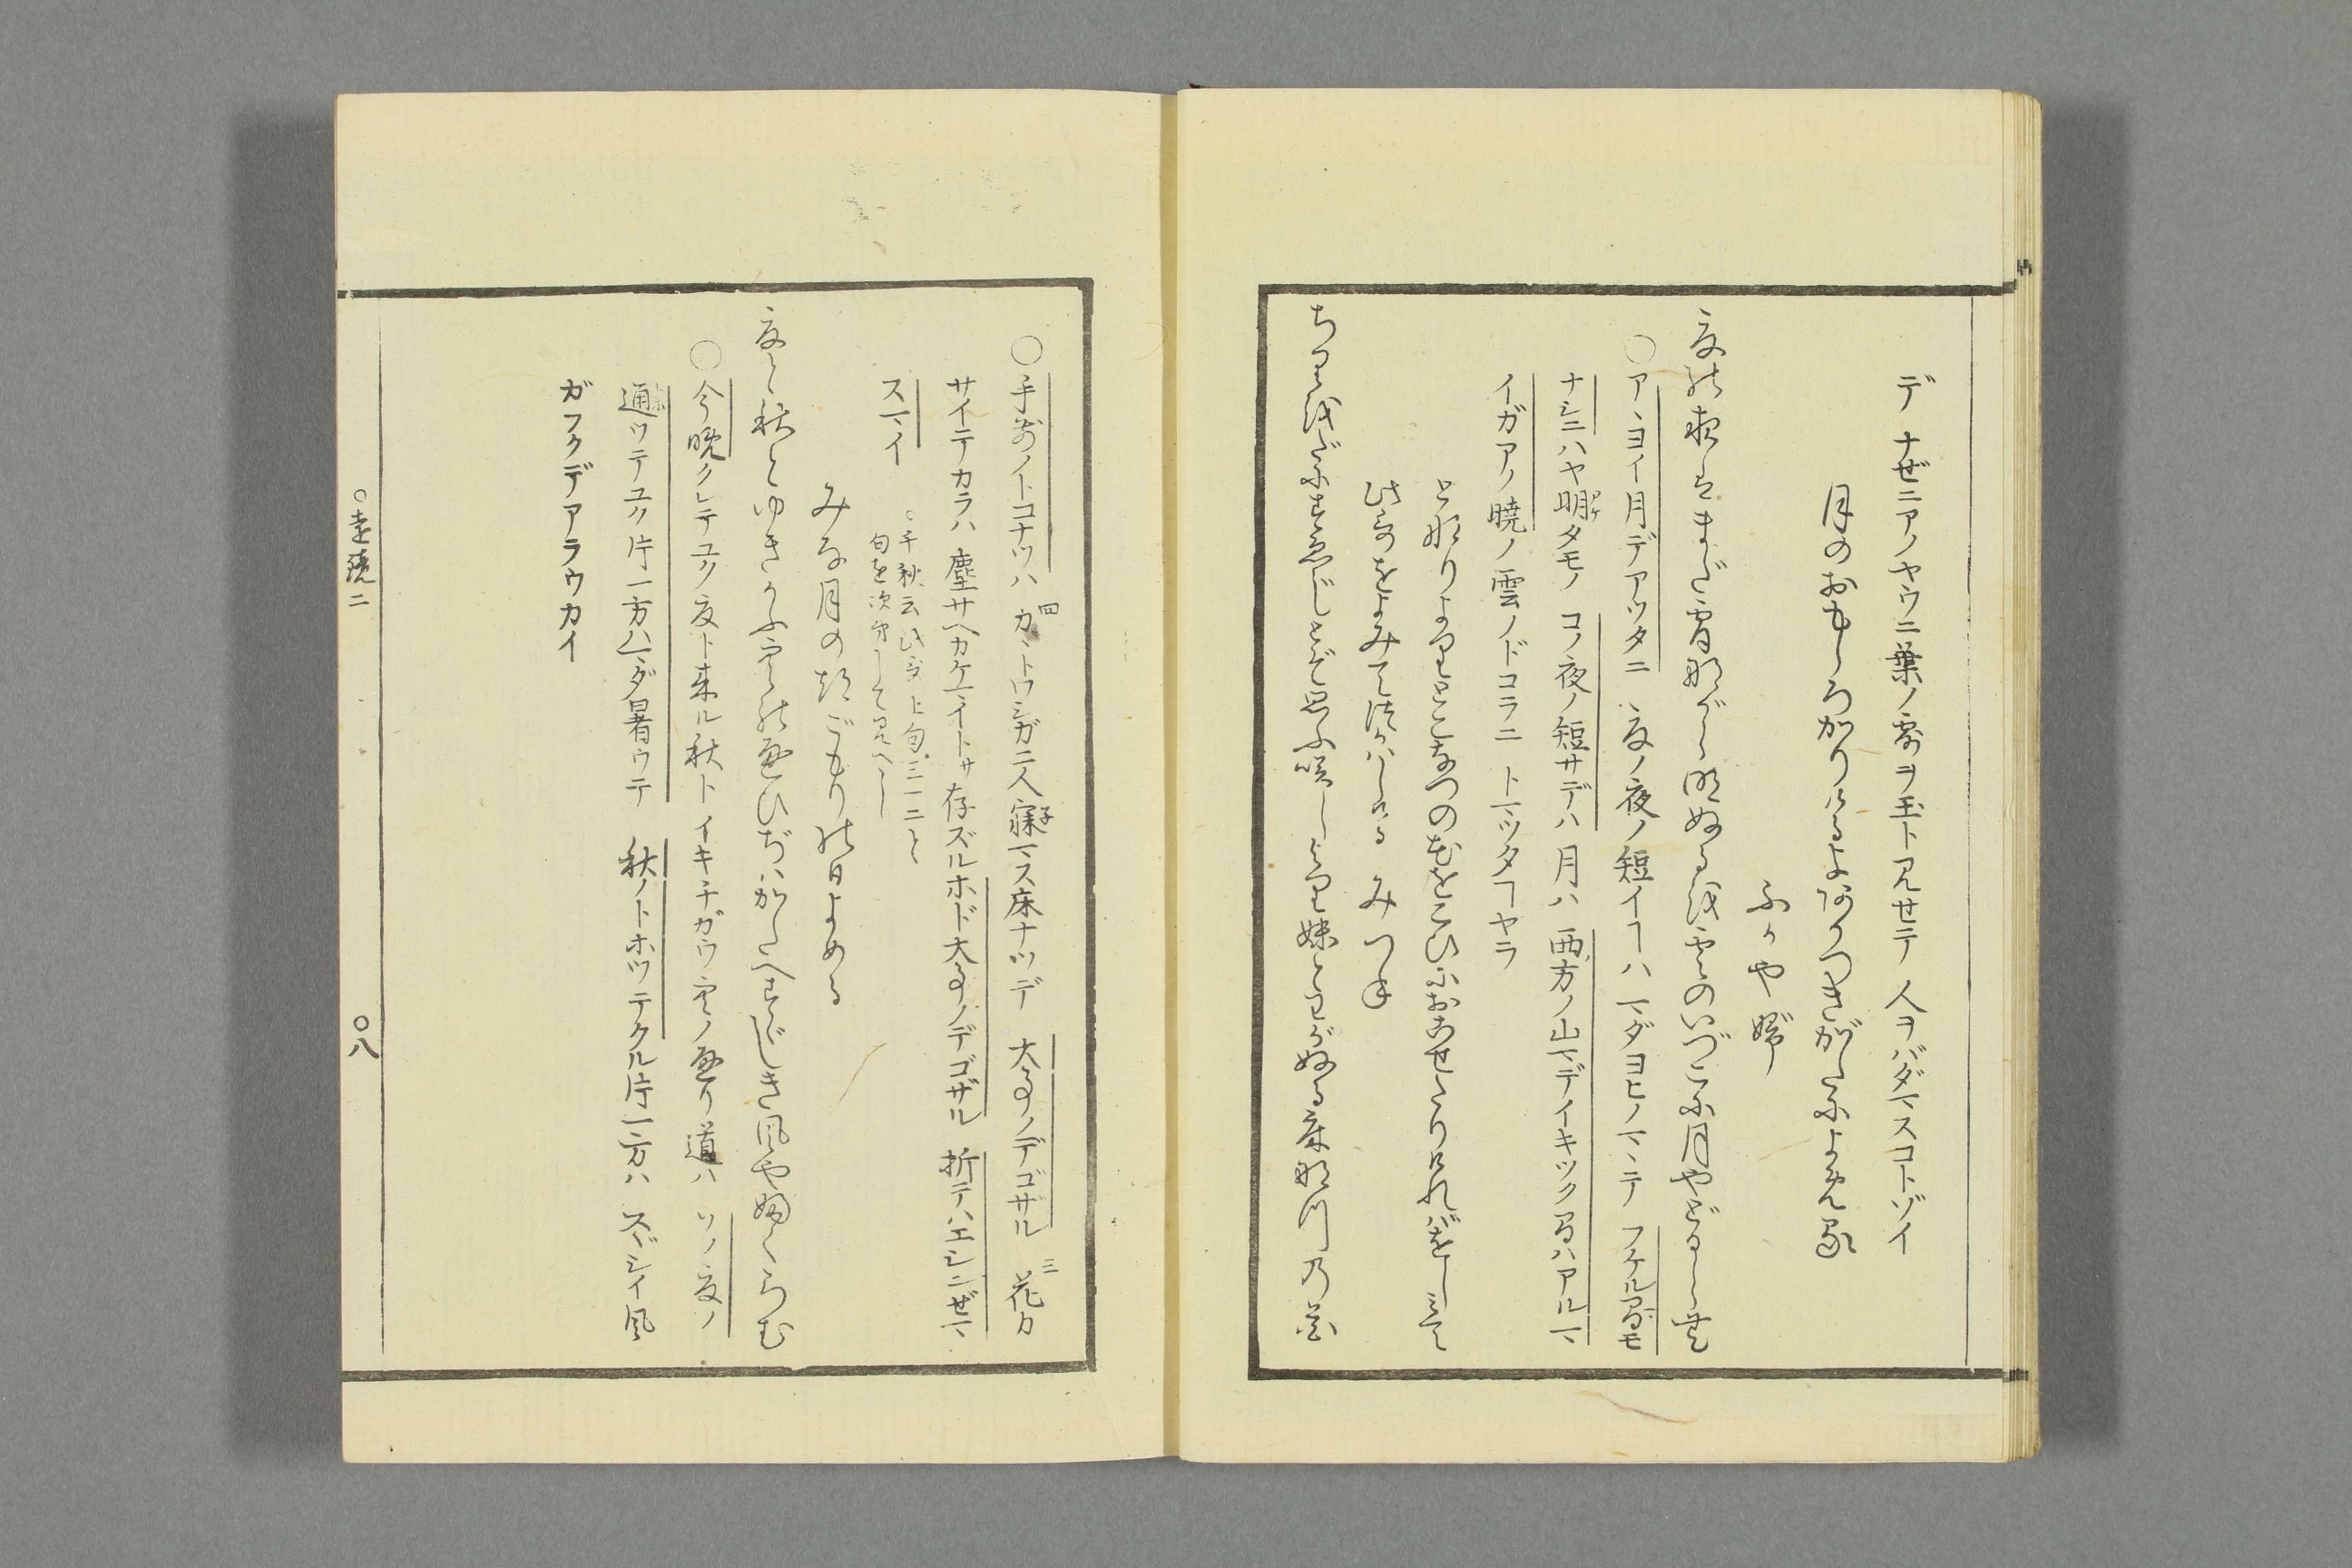 デ ナゼニアノヤウニ葉ノ露ヲ玉ト見セテ 人ヲバダマスコトゾイ
月のおもしろかりける よあかつきがたによめる
ふかやぶ
夏の夜はまだ宵ながら明ぬるを雲のいづこに月やどるらむ
○アヽヨイ月デアツタニ 夏ノ夜ノ短イヿハ マダヨヒノマヽデ フケル間モ
ナシニハヤ明ケタモノ コノ夜ノ短サデハ 月ハ 西ノ方ノ山マデイキツク間ハアルマ
イガアノ暁ノ雲ノドコラニ トマツタヿヤラ
となりよりとこなつの花をこひにおこせたりければをしみて
此哥をよみてつかはしける みつね
ちりをだにすゑじとぞ思ふ咲しより妹とわがぬる床夏の花
○手前ノトコナツハ 四カヽトワシガ二人寐マス床ナツデ 大事ノデゴザル 三花ガ
サイテカラハ 塵サヘカケマイトサ存ズルホド大事ノデゴザル 折テハエシンゼマ
スマイ
○千秋云此哥上句三一二と
句を次第して見べし
みな月の晦ごもりの日よめる
夏と秋とゆきかふ空の通ひぢはかたへすゞしき風や吹くらむ
○今晩クレテユク夏ト来ル秋ト イキチガウ空ノ通リ道ハ ソノ夏ノ
通ツテユク片一方ハマダ暑ウテ 秋ノトホツテクル片一方ハ スヾシイ風
ガフクデアラウカイ
○遠鏡二
○八